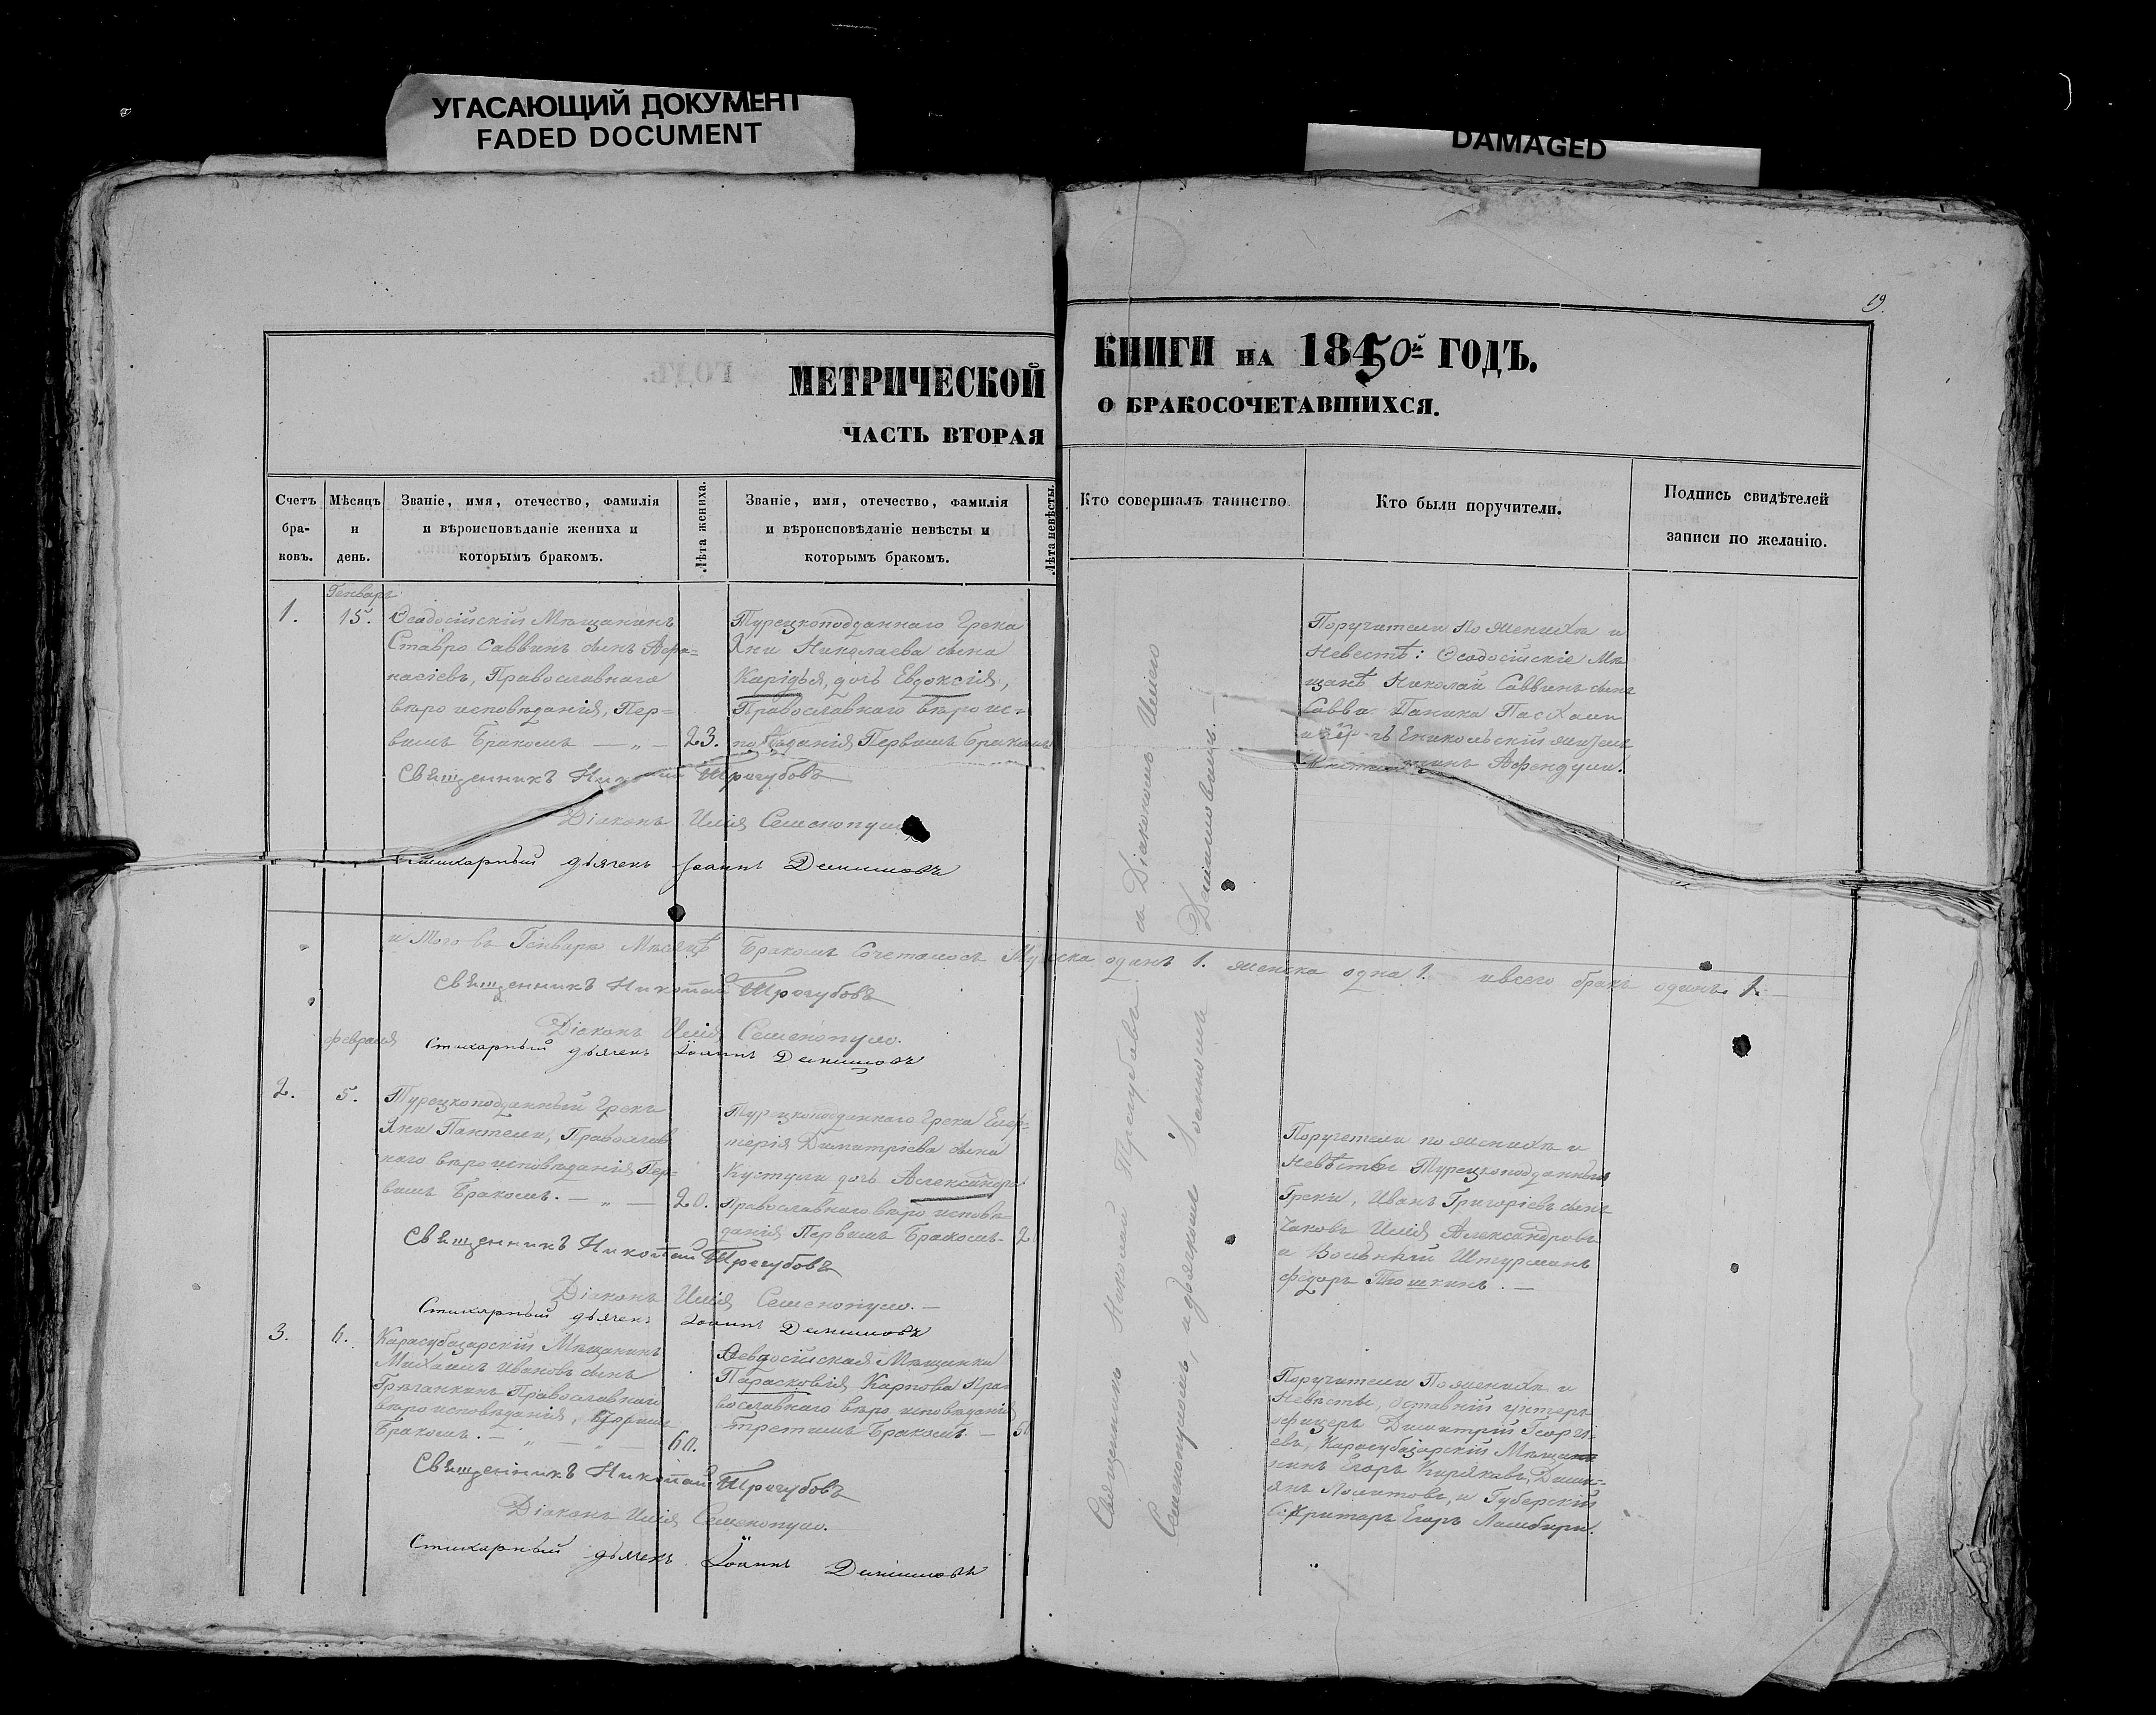 УГАСАЮЩИЙ ДОКУМЕНТ
FADED DOCUMENT
DAMAGED
19.
МЕТРИЧЕСКОЙ
КНИГИ НА 1850й ГОДЪ.
ЧАСТЬ ВТОРАЯ
О БРАКОСОЧЕТАВШИХСЯ.
Счетъ бра- ковъ.
Мѣсяцъ и день.
Званіе, имя, отечество, фамилія
и вѣроисповѣданіе жениха и
которымъ бракомъ.
Лѣта жениха.
Званіе, имя, отечество, фамилія
и вѣроисповѣданіе невѣсты и
которымъ бракомъ.
Лѣта невѣсты.
Кто совершалъ таинство.
Кто были поручители.
Подпись свидѣтелей
записи по желанію.
Генварь
1.
15.
Ѳеодосійскій Мѣщанинъ
Ставро Саввинъ сынъ Афа=
насіевъ, Православнаго
вѣро исповѣданія, Пер=
вымъ Бракомъ — „ —
23.
Турецкоподданнаго Грека
Яни Николаева сына
дочь Евдоксія,
Православнаго вѣро ис=
повѣданія Первымъ Бракомъ
Поручители По Женихѣ и
Невестѣ: Ѳеодосійскіе Мѣ
щанѣ Николай Саввинъ сынъ
Савва Паника
Еникольскій житель
Афендули.
Священникъ Трегубовъ
Діаконъ Илія
Стихарный дьячекъ Іоаннъ Данимовъ
и того въ Генварѣ Месяцѣ Бракомъ Сочеталось Мужеска одинъ 1. женска одна 1. и всего бракъ одинъ 1.
Священникъ Николай Трегубовъ
Діаконъ Илія Семенопуло.
Стихарный дьячекъ Іоаннъ Данимовъ
Февраля
2.
5.
Турецкоподданный Грекъ
Яни Пантели, Православ
наго вѣро исповѣданія Пер=
вымъ Бракомъ. — „ —
20.
Турецкоподданнаго Грека Елеф=
терія Димитріева сына
Кустули дочь Александра
Православнаго вѣро исповѣ
данія Первымъ Бракомъ-
Поручетели по женихѣ и
Невѣсты Турецкоподданные
Греки, Иванъ Григоріевъ сынъ
Илія Александровъ
и Вольный Штурманъ
Федоръ
Священникъ Николай Трегубовъ
Діаконъ Илія Семенопуло. —
Стихарный дьячекъ Іоаннъ Данимовъ
3.
6.
Карасубазарскій Мѣщанинъ
Михаилъ Ивановъ сынъ
Православнаго
вѣро исповѣданія, Вторымъ
Бракомъ. — „ — „ —
60.
Ѳеодосійская Мѣщанка
Парасковія Карпова Пра=
вославнаго вѣро исповѣданія
третимъ Бракомъ. —
Поручители По женихѣ и
Невѣсты, Оставній унтеръ
офицеръ Димитрій Георгі=
евъ, Карасубазарскій Мѣща
нинъ Егоръ Киряковъ, Дами=
янъ и Губерскій
Секритарь Егоръ
Священникъ Николай Трегубовъ
Діаконъ Илія Семенопуло.
Стихарный дьячекъ Іоаннъ Данимовъ
Священникъ Николай Трегубовъ съ Діакономъ Иліею
Семенопуломъ, и дьячкомъ Іоанномъ Данимовымъ. —